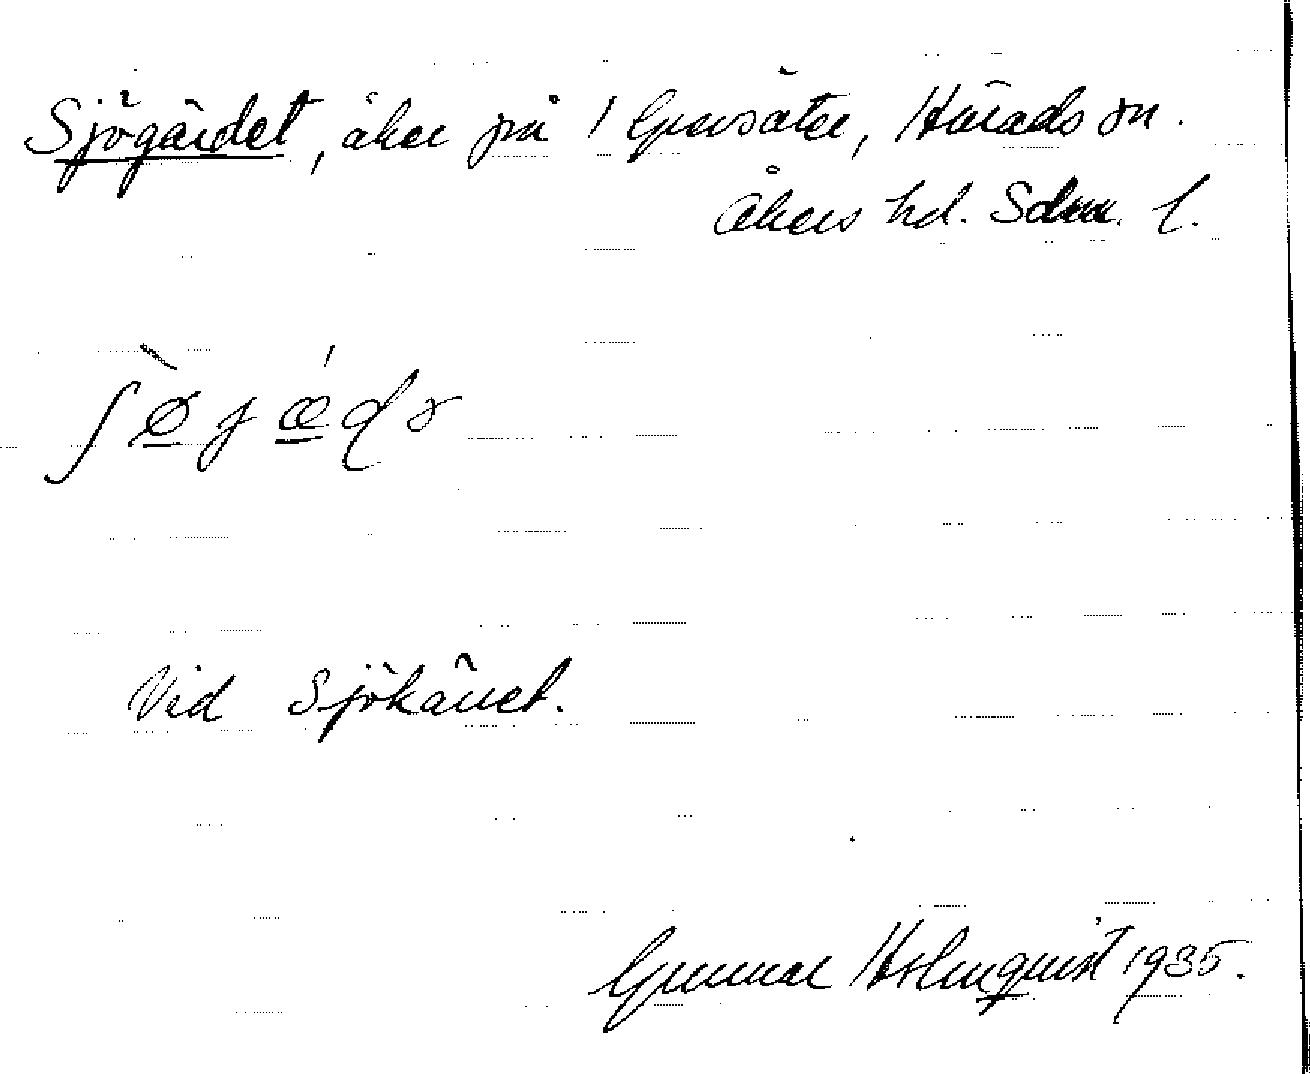 Sjögärdet, åker på Grusäter, Härads sn.
Åkers hd. Sdm. l.
Vid Sjökärret.
Gunnar Holmquist 1935.